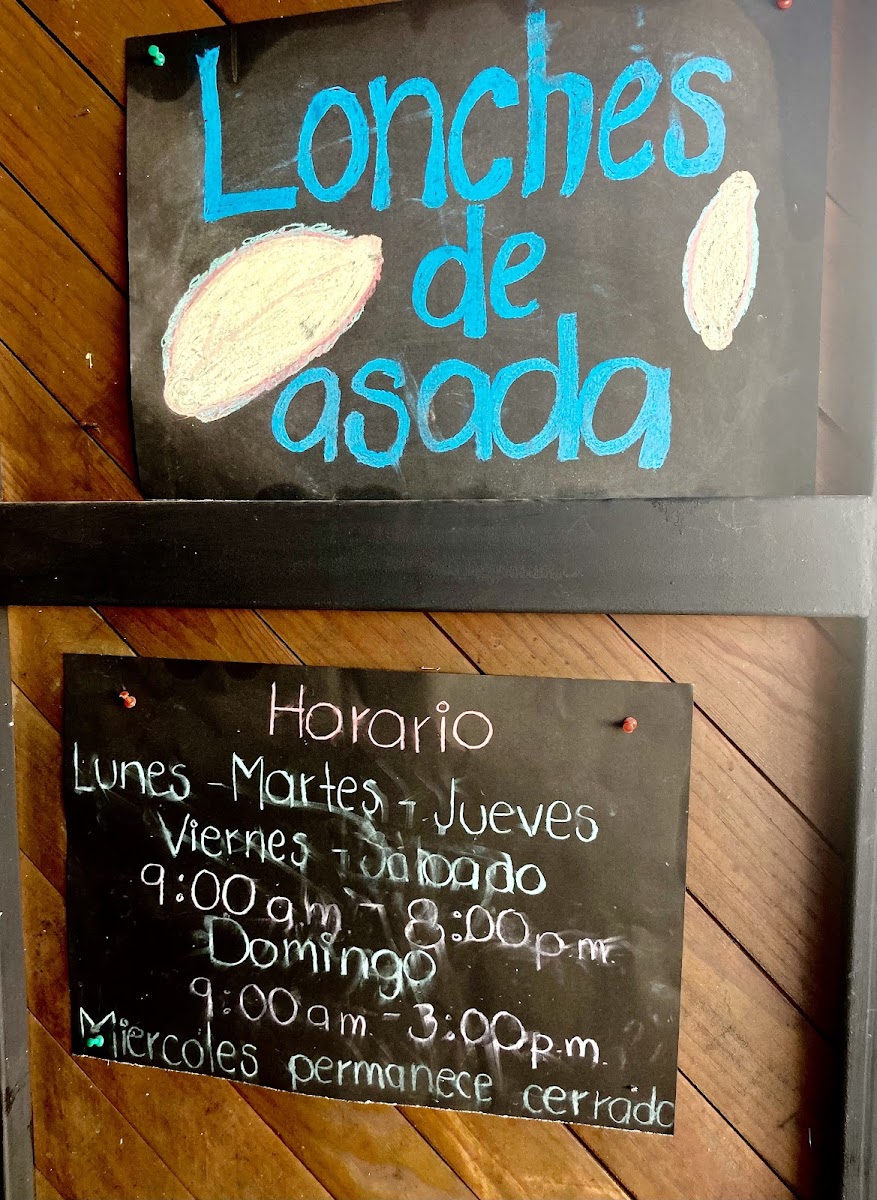 Lonches
de
asada
Horario
Lunes - Martes - Jueves
Viernes - Sábado
9:00 a.m - 8:00 p.m.
Domingo
9:00 a.m - 3:00 p.m.
Miercoles permanece cerrado